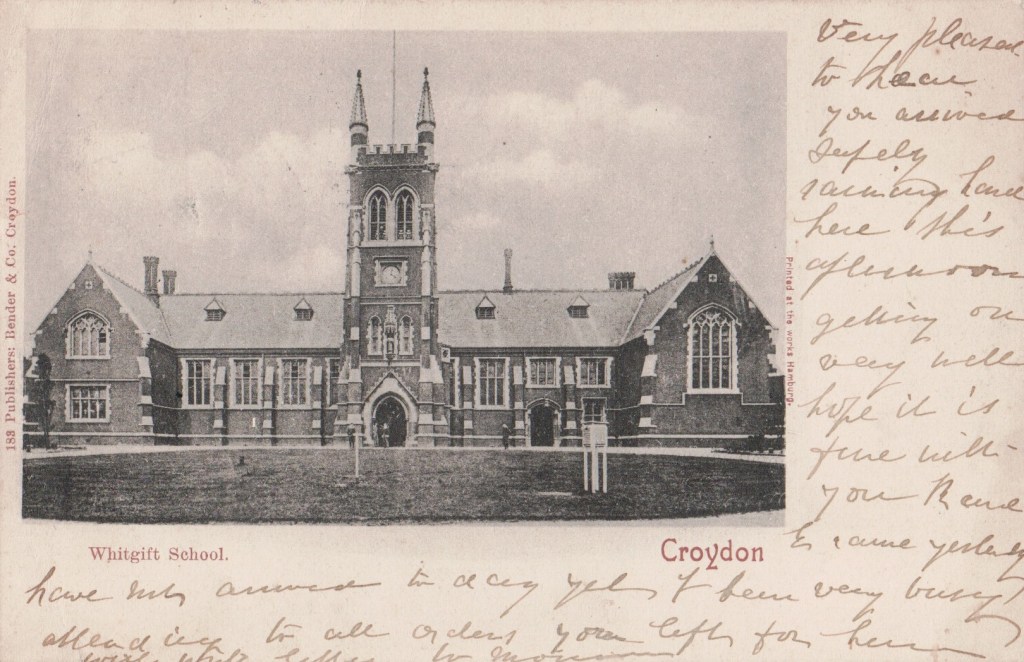 Very pleased
to hear
you arrived
safely
raining hard
here this
afternoon
getting on
very well
hope it is
fine with
you R and
E came yesterday
have not arrived to day yet I been very busy
attending to all orders you left for
to
183 Publishers: Bender & Co. Croydon.
Printed at the works Hamburg.
Whitgift School.
Croydon